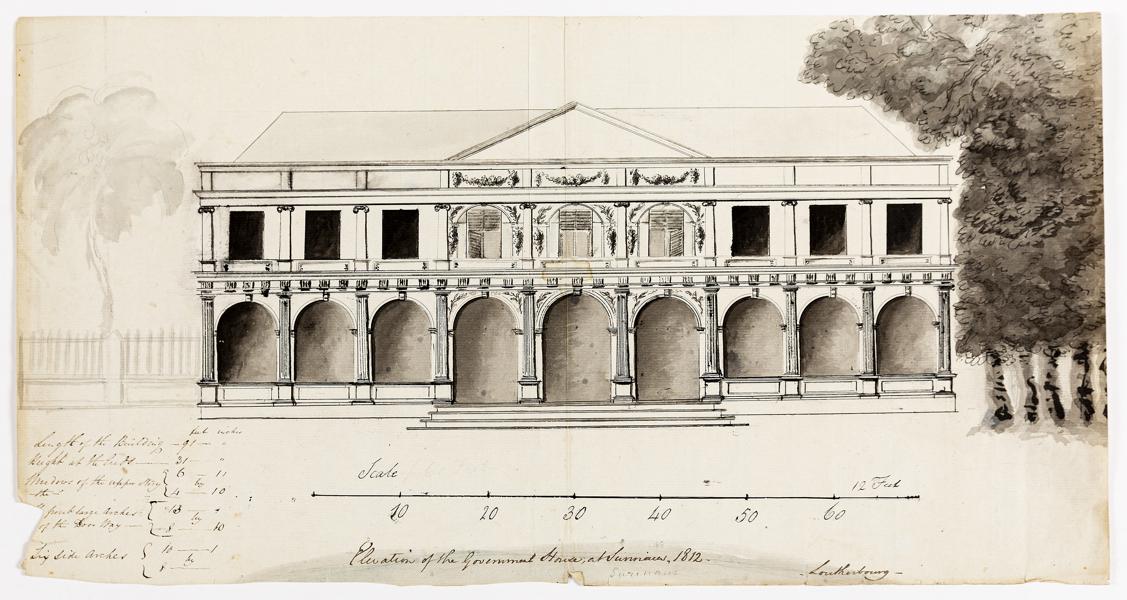 feet inches
Length of the Building — 91 — "
Height at the Ends — 31 — "
Windows of the upper Story { 6 — 11
by
4 — 10
" front large Arches { 13 — "
of the Door Way — by
8 — 10
Six side Arches { 10 — 1
by
Scale
12 Feet
10 20 30 40 50 60
Elevation of the Government House, at Surinam, 1812.
Surinam
- Loutherbourg -